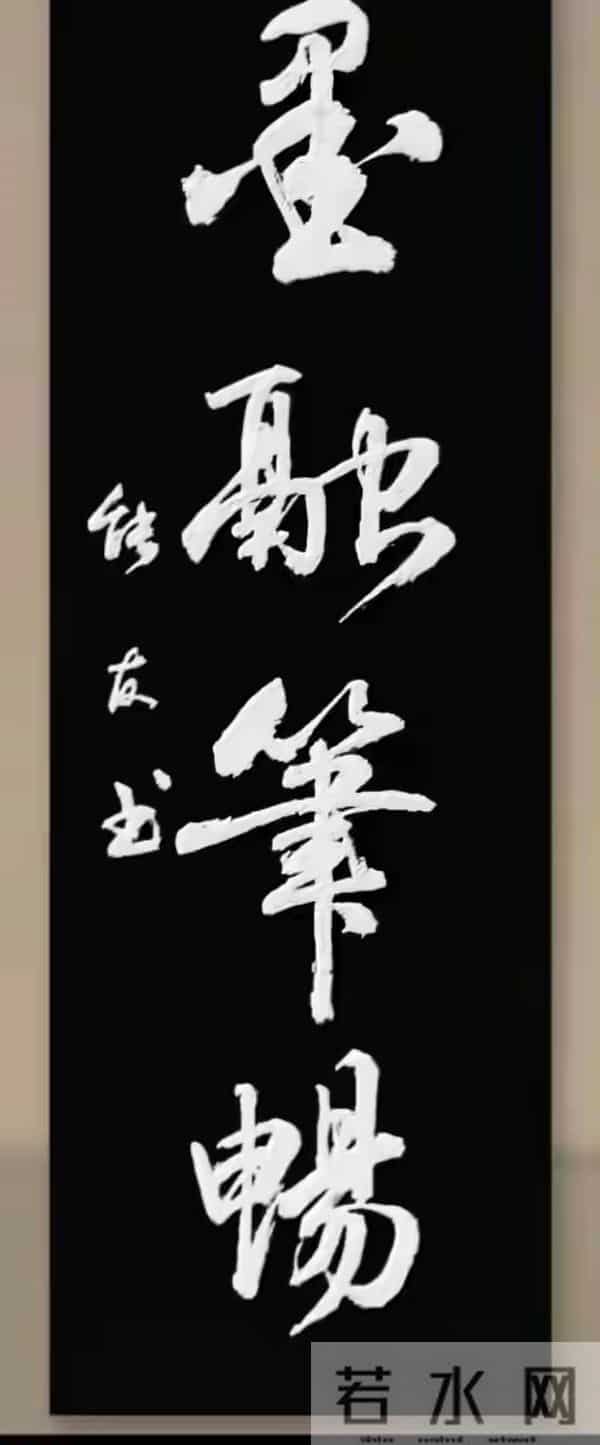 墨融筆暢
友书
若水网